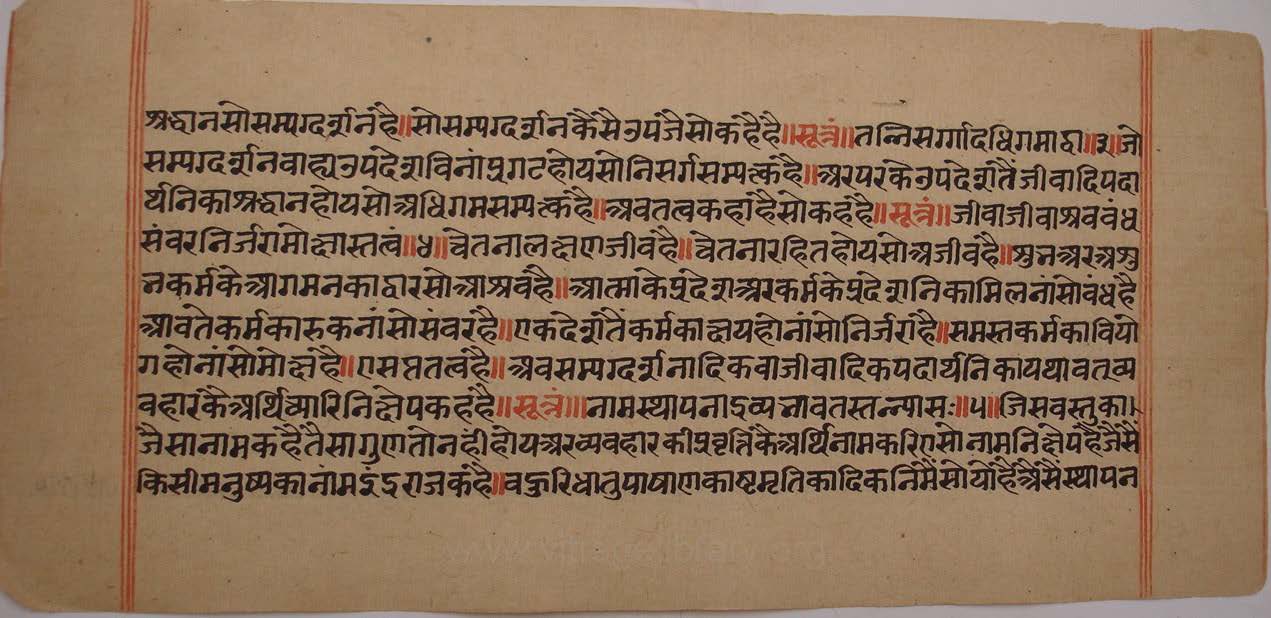 श्रद्धानसोसम्यग्दर्शनहै॥सोसम्यग्दर्शनकैसेउपजैसोकहैहै॥सूत्रं॥तन्निसर्गादधिगमाद्वा॥३॥जो
सम्यग्दर्शनवाह्यउपदेशविनांप्रगटहोयसोनिसर्गसम्यत्कहै॥अरपरकेउपदेशतैंजीवादिपदा
र्थनिकाश्रद्धानहोयसोअधिगमसम्यत्कहै॥अवतत्वकहांहैसोकहंहै॥सूत्रं॥जीवाजीवाश्रववंध
संवरनिर्जरामोक्षास्तत्वं॥४॥चेतनालक्षणजीवहै॥चेतनारहितहोयसोअजीवहै॥शुभअरअशु
भकर्मकेआगमनकाद्वारसोआश्रवहै॥आत्माकेप्रदेशअरकर्मकेप्रदेशनिकामिलनांसोवंधहै
आवतेकर्मकारुकनांसोसंवरहै॥एकदेशतैंकर्मकाक्षयहोनांसोनिर्जराहै॥समस्तकर्मकावियो
गहोनांसोमोक्षहै॥एसप्ततत्वहै॥अवसम्यग्दर्शनादिकवाजीवादिकपदार्थनिकायथावतव्य
वहारकैअर्थिच्यारिनिक्षेपकहंहै॥सूत्रं॥नामस्थापनाद्रव्यभावतस्तन्न्यासः॥५॥जिसवस्तुका
जैसानामकहैतैसागुणतोनहीहोयअरव्यवहारकीप्रवृत्तिकैअर्थिनामकरिएसोनामनिक्षेपहैजैसैं
किसीमनुष्यकानांमइंद्रराजकहै॥वहुरिधातुपाषाणकाष्टमृतिकादिकनिमैसोयोहैअैसैस्थापन